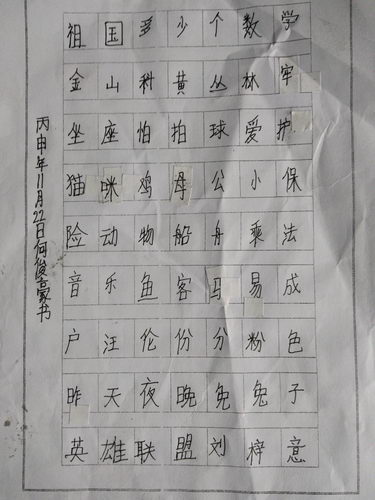 祖国多少个数学
金山种黄丛林牢
坐座怕拍球爱护
猫咪鸡母公小保
险动物船舟乘法
音乐鱼客马易成
户汪伦份分粉色
昨天夜晚免兔子
英雄联盟刘梓意
丙申年11月22日何俊豪书